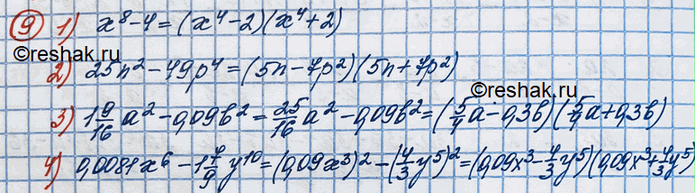 9 1) x⁸-4=(x⁴-2)(x⁴+2)
©reshak.ru
2) 25n²-49p⁴=(5n-7p²)(5n+7p²)
©reshak.ru
3) 1 9/16 a²-0,09b²=25/16 a²-0,09b²=(5/4 a-0,3b)(5/4 a+0,3b)
4) 0,0081x⁶-1 7/9 y¹⁰=(0,09x³)²-(4/3 y⁵)²=(0,09x³-4/3 y⁵)(0,09x³+4/3 y⁵)
©reshak.ru